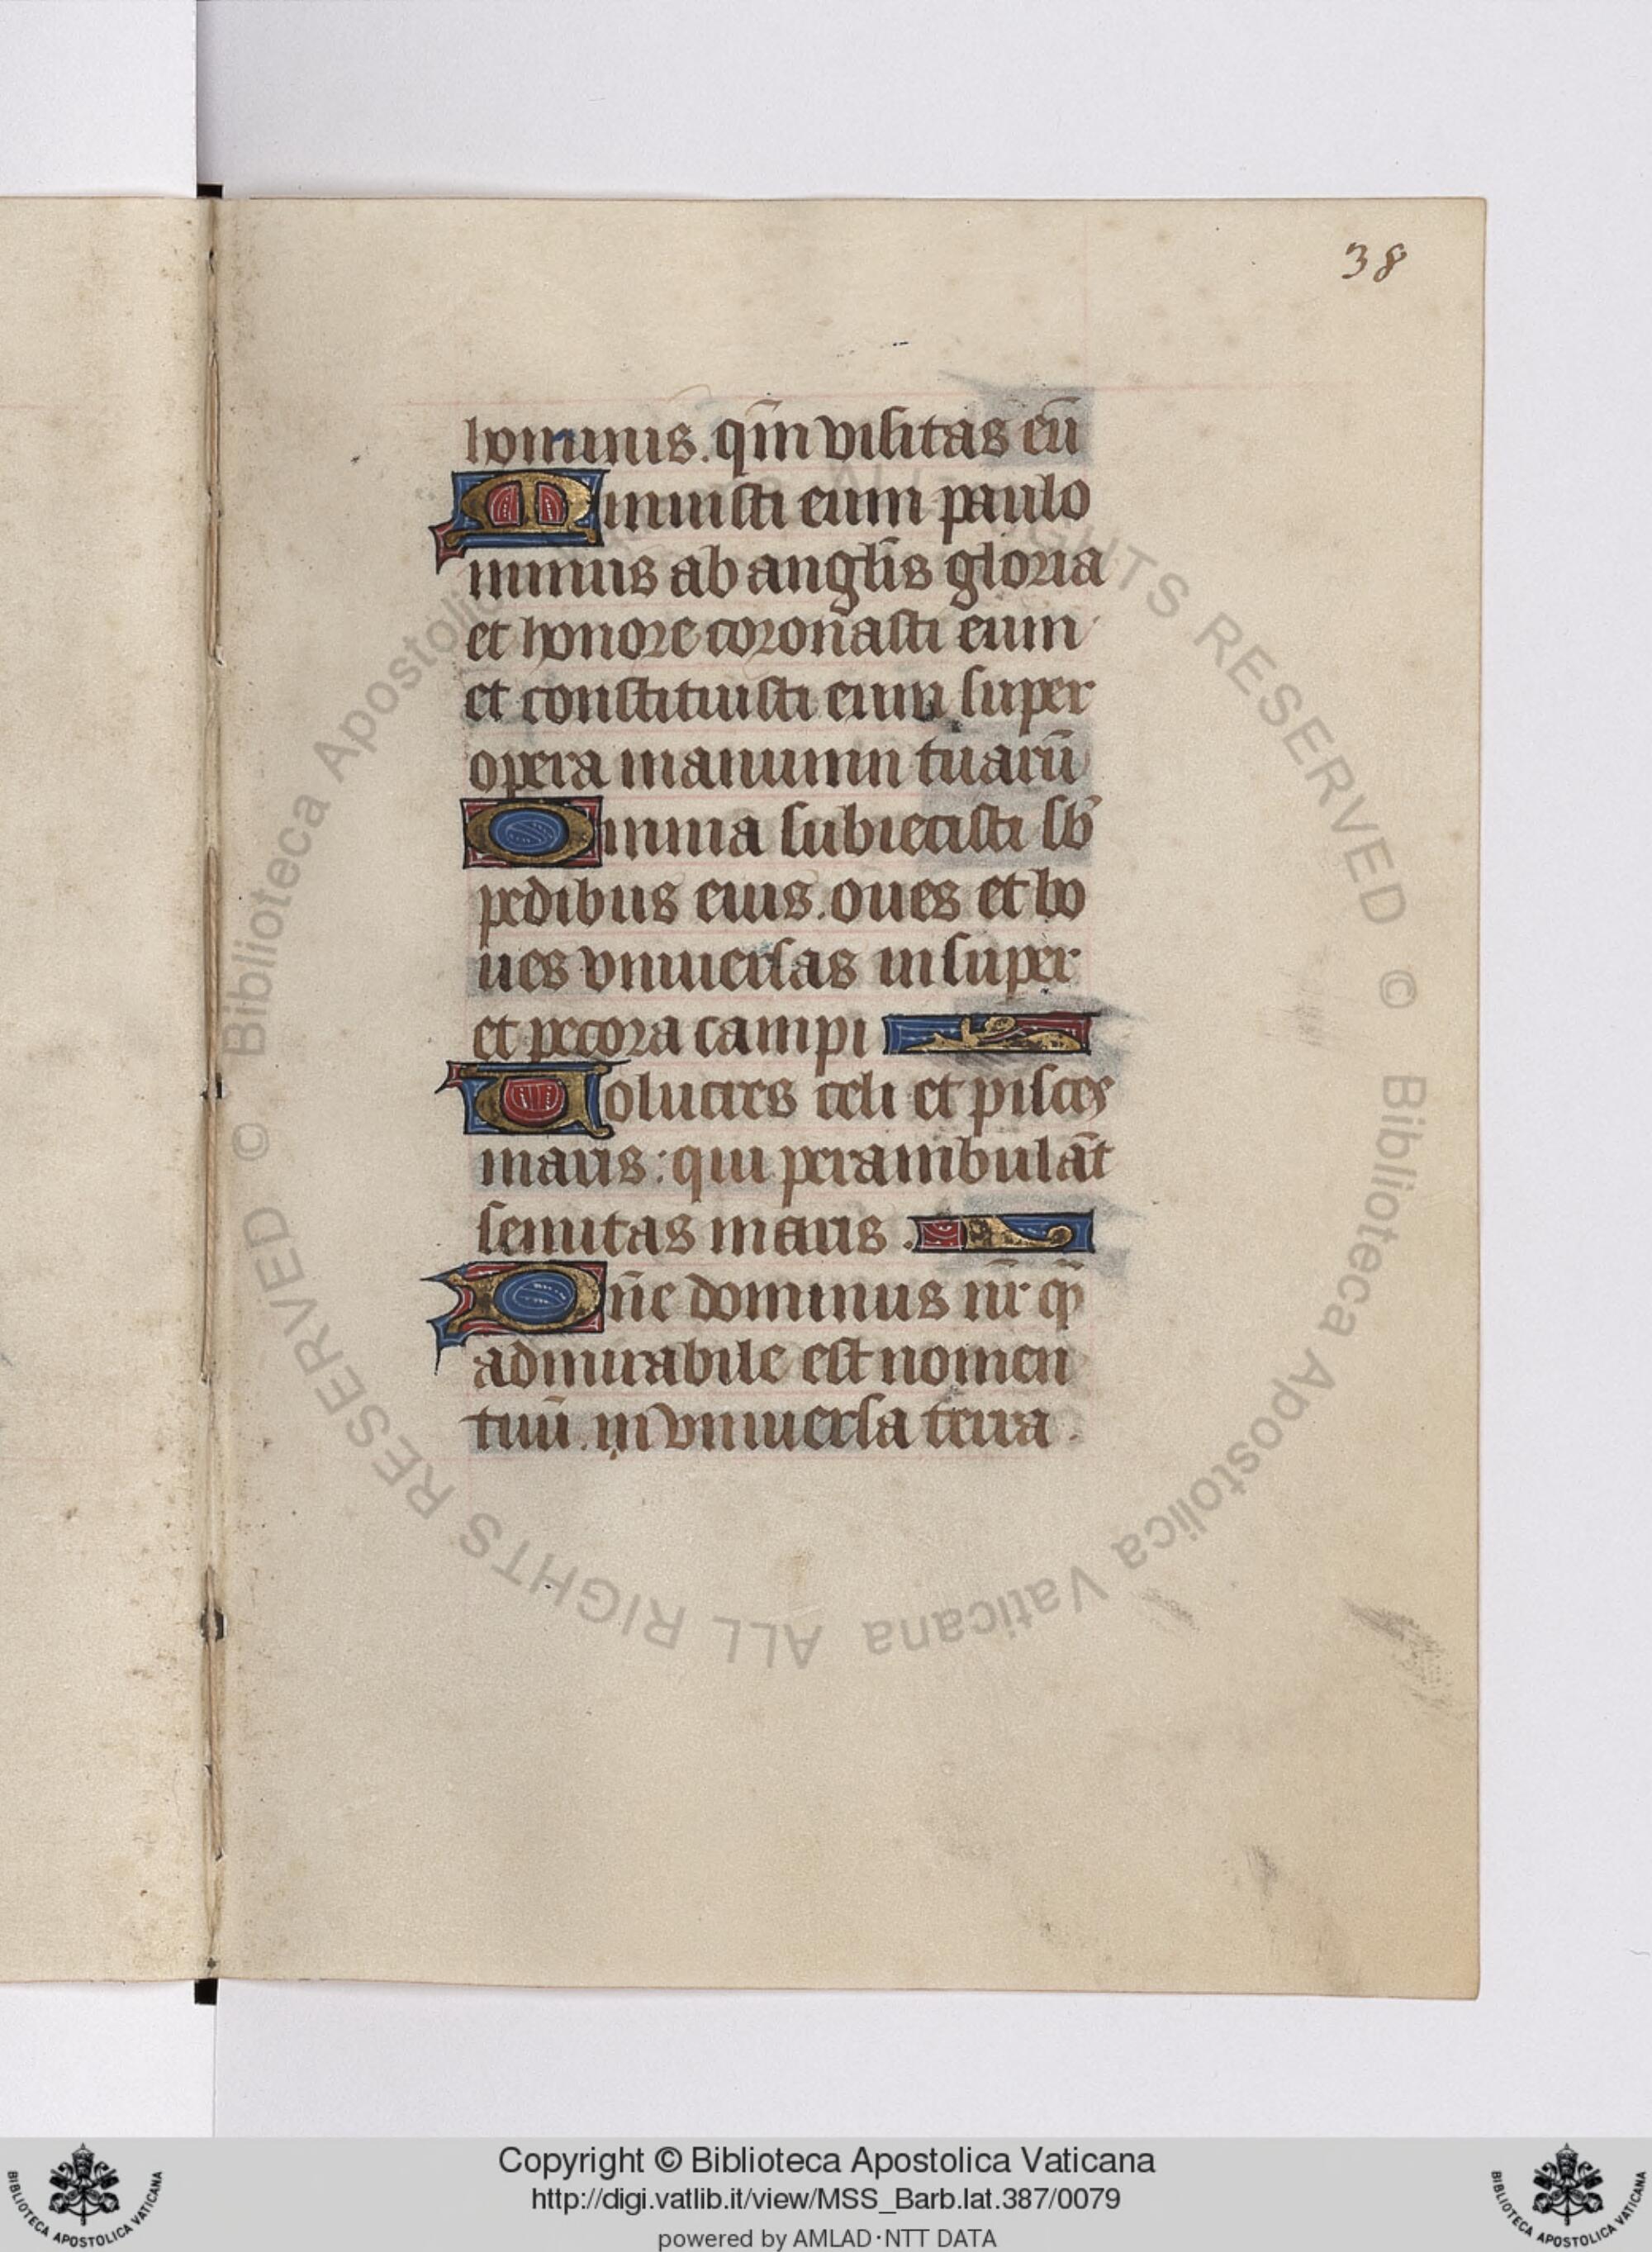 38
hominis. qm̄ visitas eū
Minuisti eum paulo
minus ab angl̄is gloria
et honore coronasti eum
et constituisti eum super
opera manuum tuarū
Omnia subiecisti sb̄
pedibus eius. oues et bo
ues vniuersas insuper
et pecora campi
Volucres celi et pisces
maris: qui perambulāt
semitas maris.
Dn̄e dominus nr̄ qꝫ
admirabile est nomen
tuū. in vniuersa terra.
© Biblioteca Apostolica Vaticana ALL RIGHTS RESERVED © Biblioteca Apostolica Vaticana ALL RIGHTS RESERVED
Copyright © Biblioteca Apostolica Vaticana
http://digi.vatlib.it/view/MSS_Barb.lat.387/0079
powered by AMLAD·NTT DATA
BIBLIOTECA APOSTOLICA VATICANA
BIBLIOTECA APOSTOLICA VATICANA